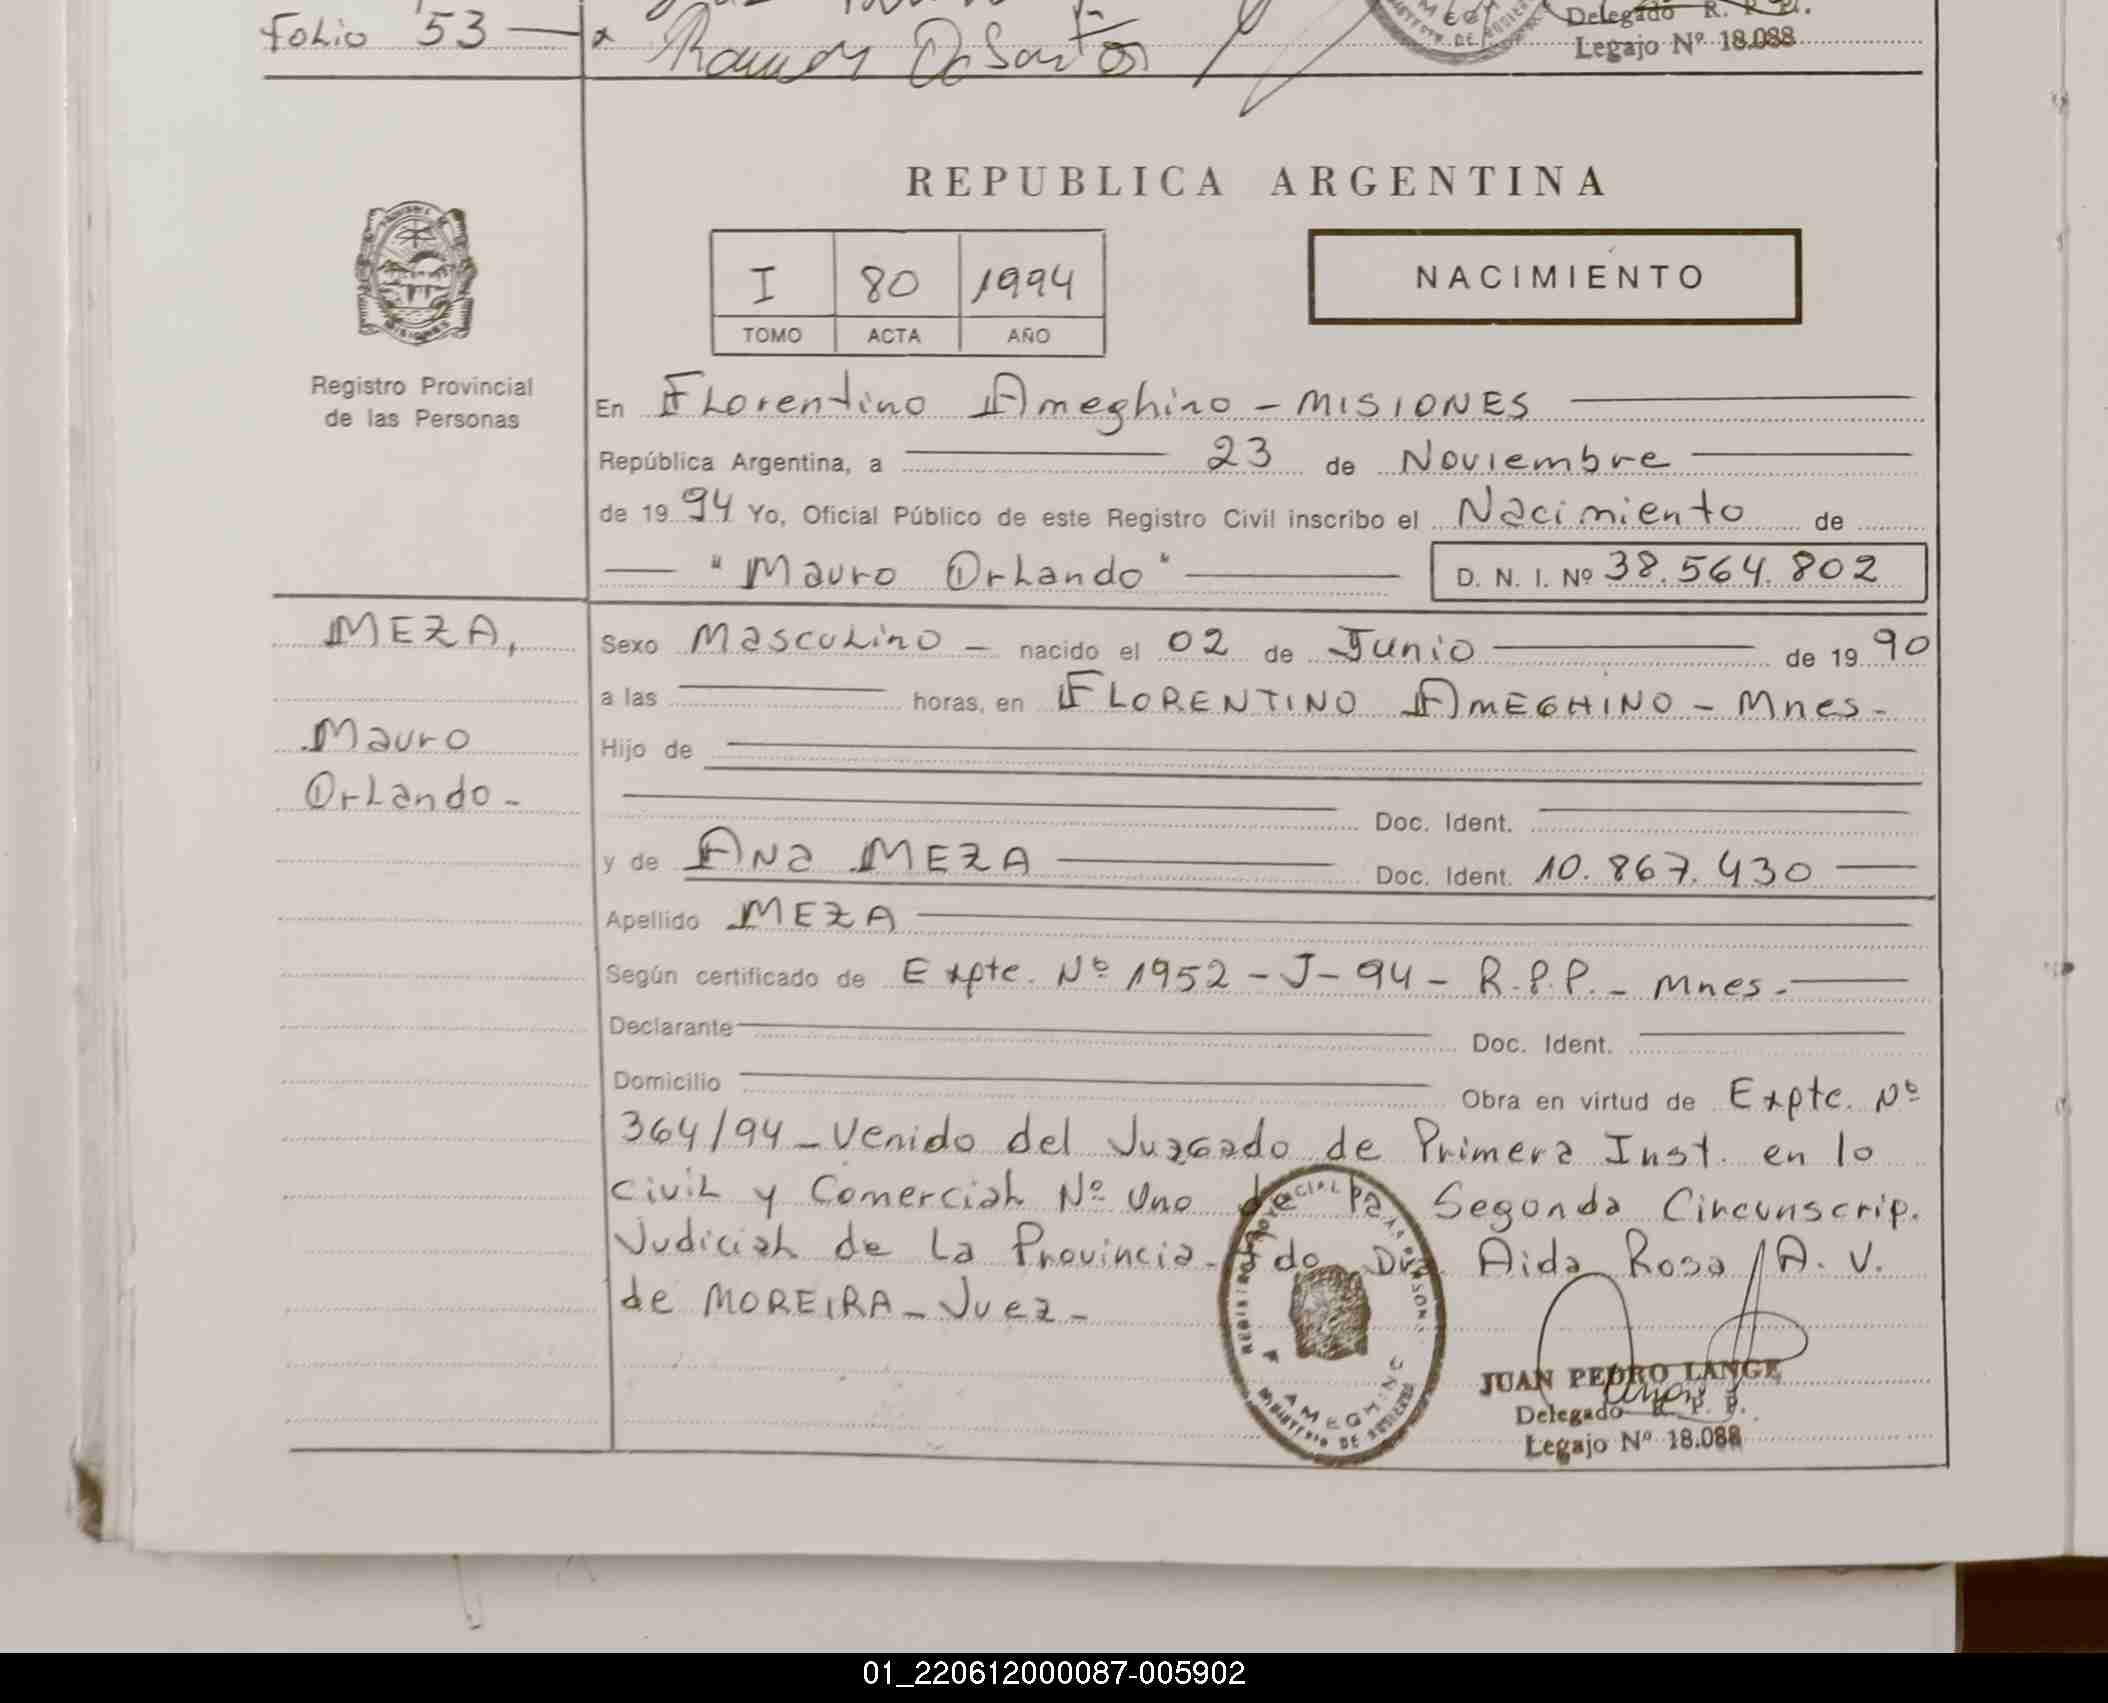 Folio 53
Ramon Da Santos
Delegado R. P. P.
Legajo Nº 18.088
REPUBLICA ARGENTINA
I 80 1994
TOMO ACTA AÑO
NACIMIENTO
Registro Provincial
de las Personas
En Florentino Ameghino - MISIONES
República Argentina, a 23 de Noviembre
de 1994 Yo, Oficial Público de este Registro Civil inscribo el Nacimiento de
"Mauro Orlando" D. N. I. Nº 38.564.802
MEZA,
Mauro
Orlando-
Sexo Masculino - nacido el 02 de Junio de 1990
a las horas, en FLORENTINO AMEGHINO - Mnes-
Hijo de
Doc. Ident.
y de Ana MEZA Doc. Ident. 10.867.430
Apellido MEZA
Según certificado de Expte. Nº 1952 - J - 94 - R.P.P. - Mnes.-
Declarante Doc. Ident.
Domicilio Obra en virtud de Expte. Nº
364/94 - Venido del Juzgado de Primera Inst. en lo
Civil y Comercial Nº Uno de la Segunda Circunscrip.
Judicial de la Provincia - Fdo Dra. Aida Rosa A. V.
de MOREIRA - Juez -
AMEGHINO
JUAN PEDRO LANGE
Delegado R. P. P.
Legajo Nº 18.088
01_220612000087-005902